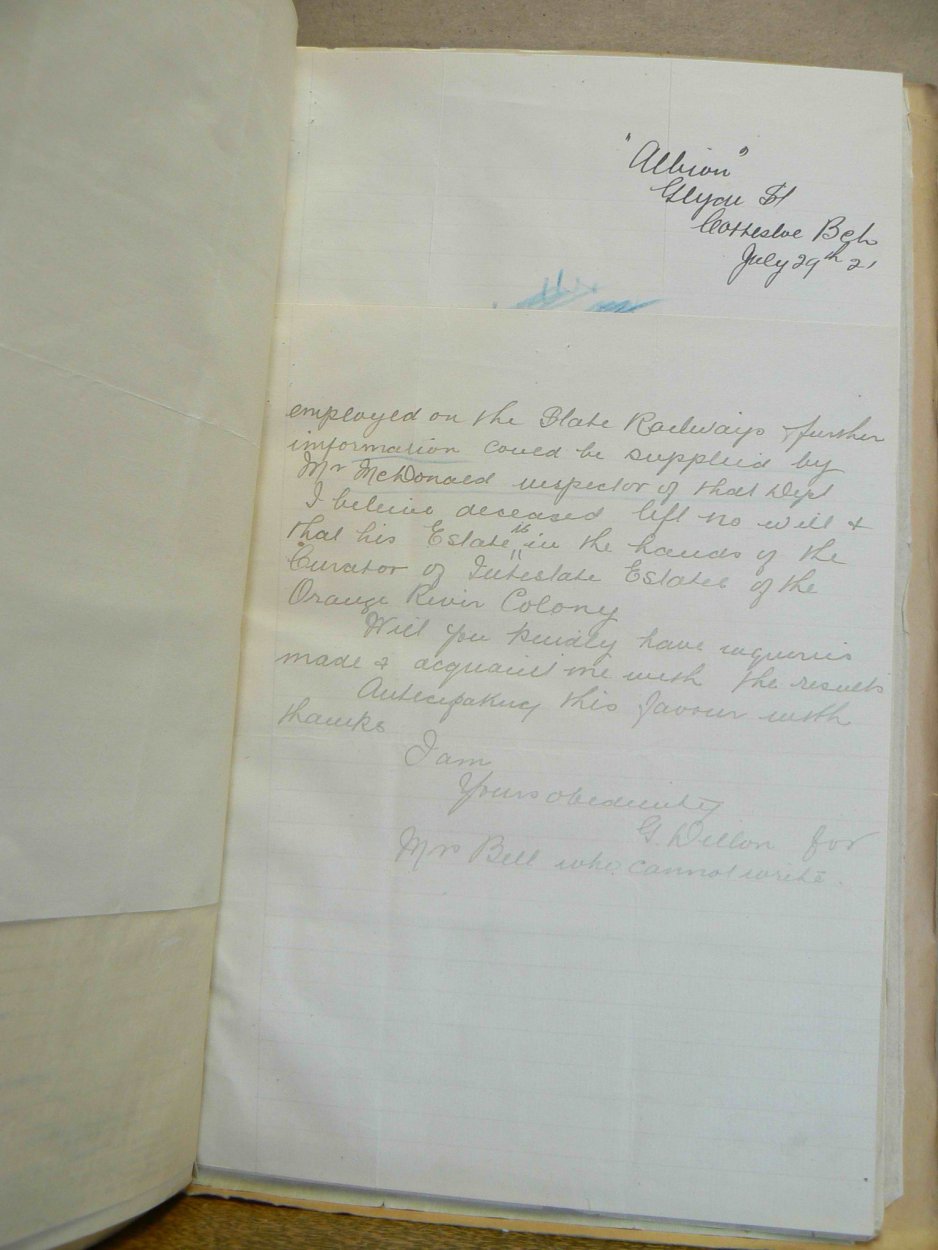 "Albion"
Glyde St
Cottesloe Bch
July 29th 21
employed on the State Railways & further
information could be supplied by
Mr McDonald inspector of that Dept
I believe deceased left no will &
that his Estate is in the hands of the
Curator of Intestate Estates of the
Orange River Colony
Will you kindly have inquiries
made & acquaint me with the results
Anticipating this favour with
thanks
I am
Yours obediently
G. Dillon for
Mrs Bell who cannot write.